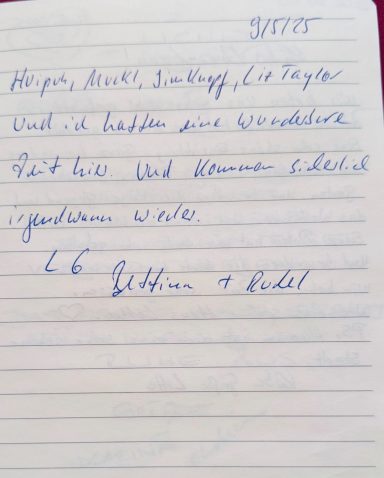 9/5/25
Huipuh, Muckl, Jim Knopf, Liz Taylor
und ich hatten eine wunderbare
Zeit hier. Und kommen sicherlich
irgendwann wieder.
LG
Bettina + Rudel